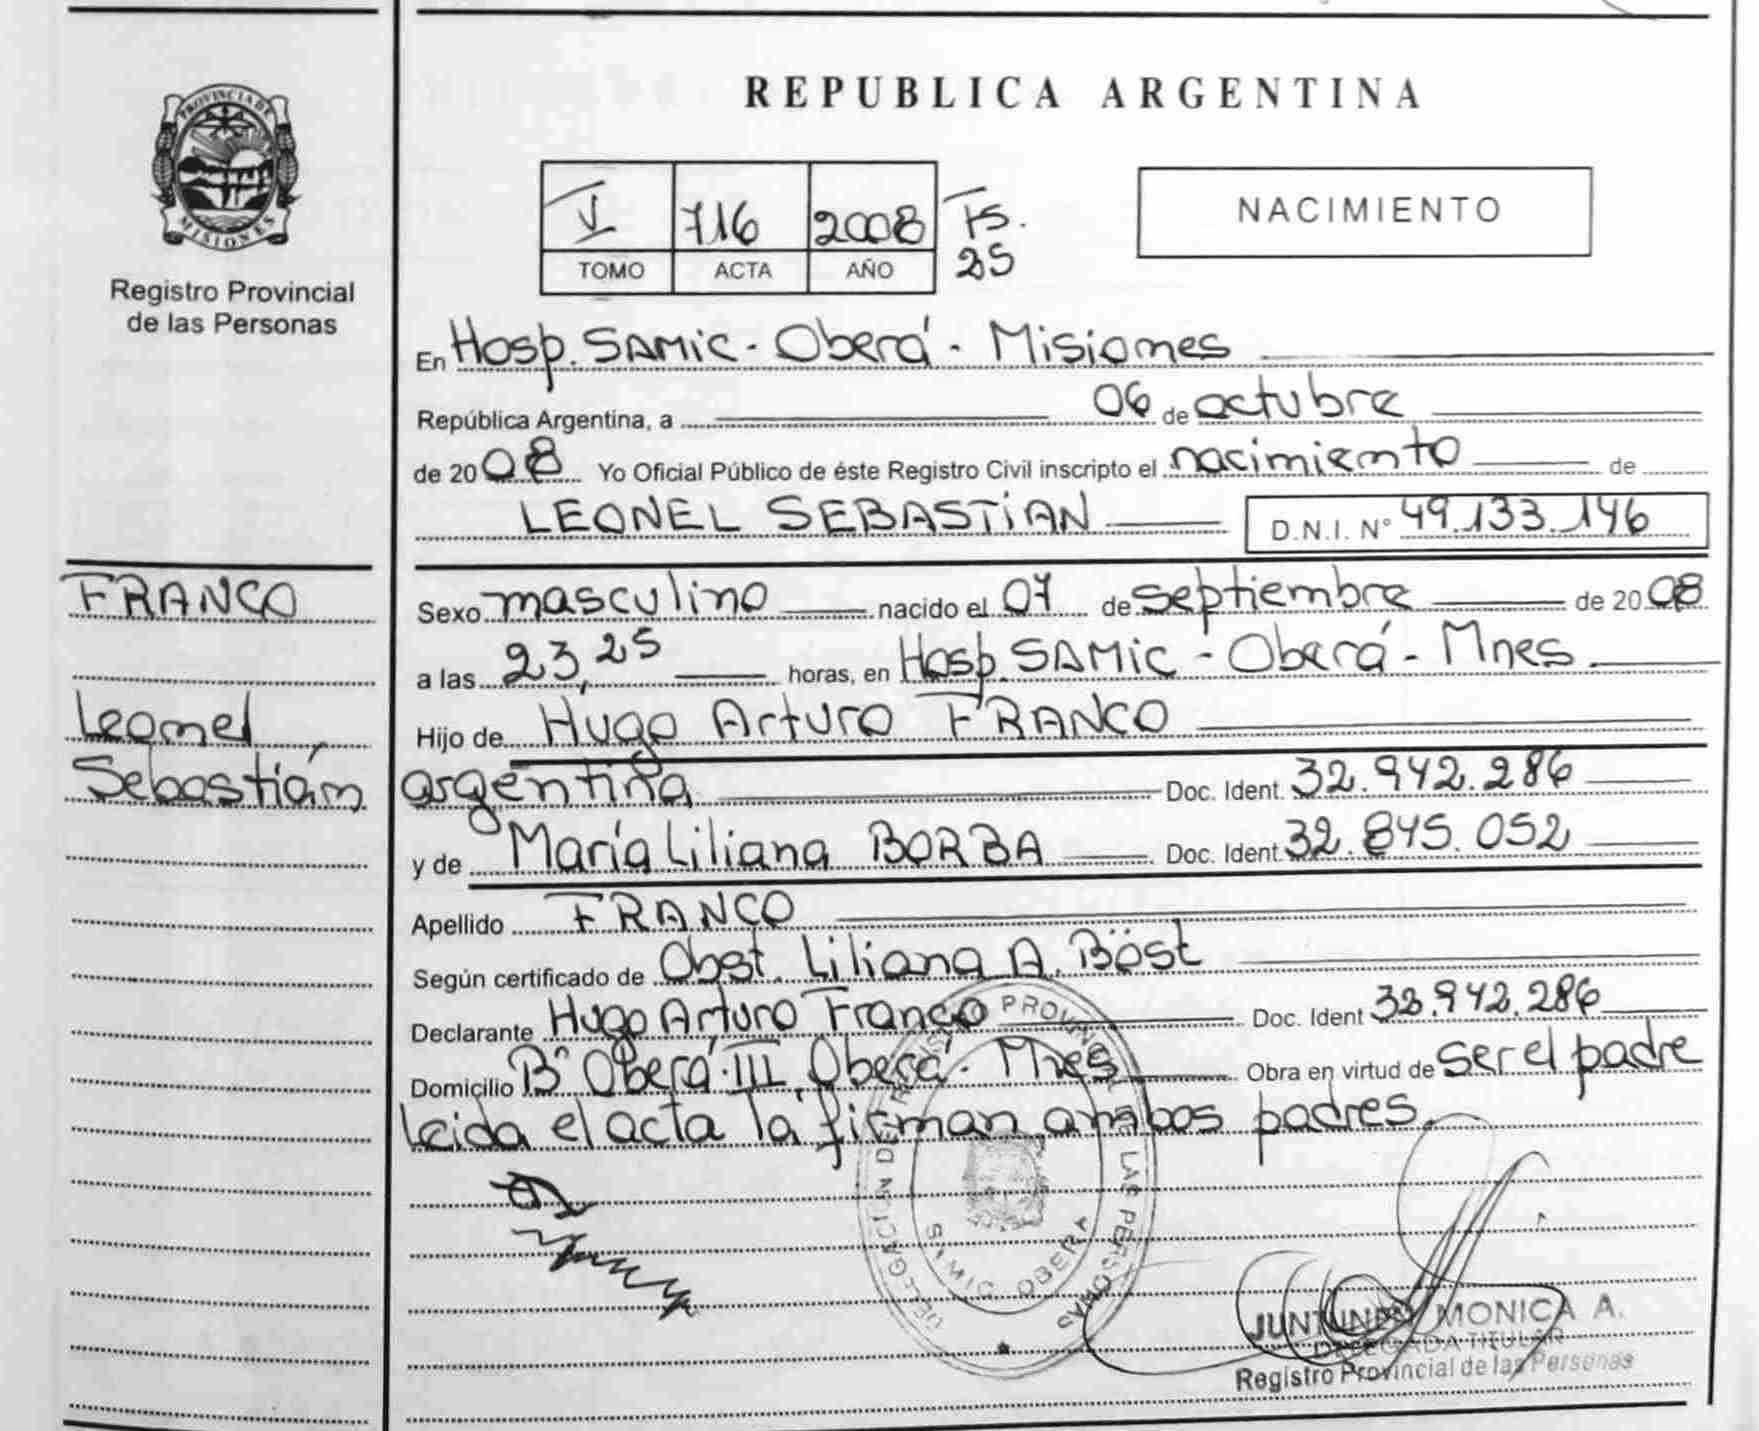 PROVINCIA DE
MISIONES
Registro Provincial
de las Personas
FRANCO
Leonel
Sebastián
REPUBLICA ARGENTINA
I 716 2008 Fs.
25
TOMO ACTA AÑO
NACIMIENTO
En Hosp. SAMIC - Oberá - Misiones
República Argentina, a 06 de octubre
de 2008 Yo Oficial Público de éste Registro Civil inscripto el nacimiento de
LEONEL SEBASTIAN D.N.I. N° 49.133.146
Sexo masculino nacido el 07 de septiembre de 2008
a las 23,25 horas, en Hosp. SAMIC - Oberá - Mnes.
Hijo de Hugo Arturo FRANCO
argentina Doc. Ident. 32.942.286
y de María Liliana BORBA Doc. Ident. 32.845.052
Apellido FRANCO
Según certificado de Obst. Liliana A. Böst
Declarante Hugo Arturo Franco Doc. Ident 32.942.286
Domicilio B° Oberá III, Oberá - Mnes Obra en virtud de ser el padre
leida el acta la firman ambos padres.
DELEGACION DEL REGISTRO PROVINCIAL DE LAS PERSONAS
SAMIC OBERA
MONICA A.
DELEGADA TITULAR
Registro Provincial de las Personas